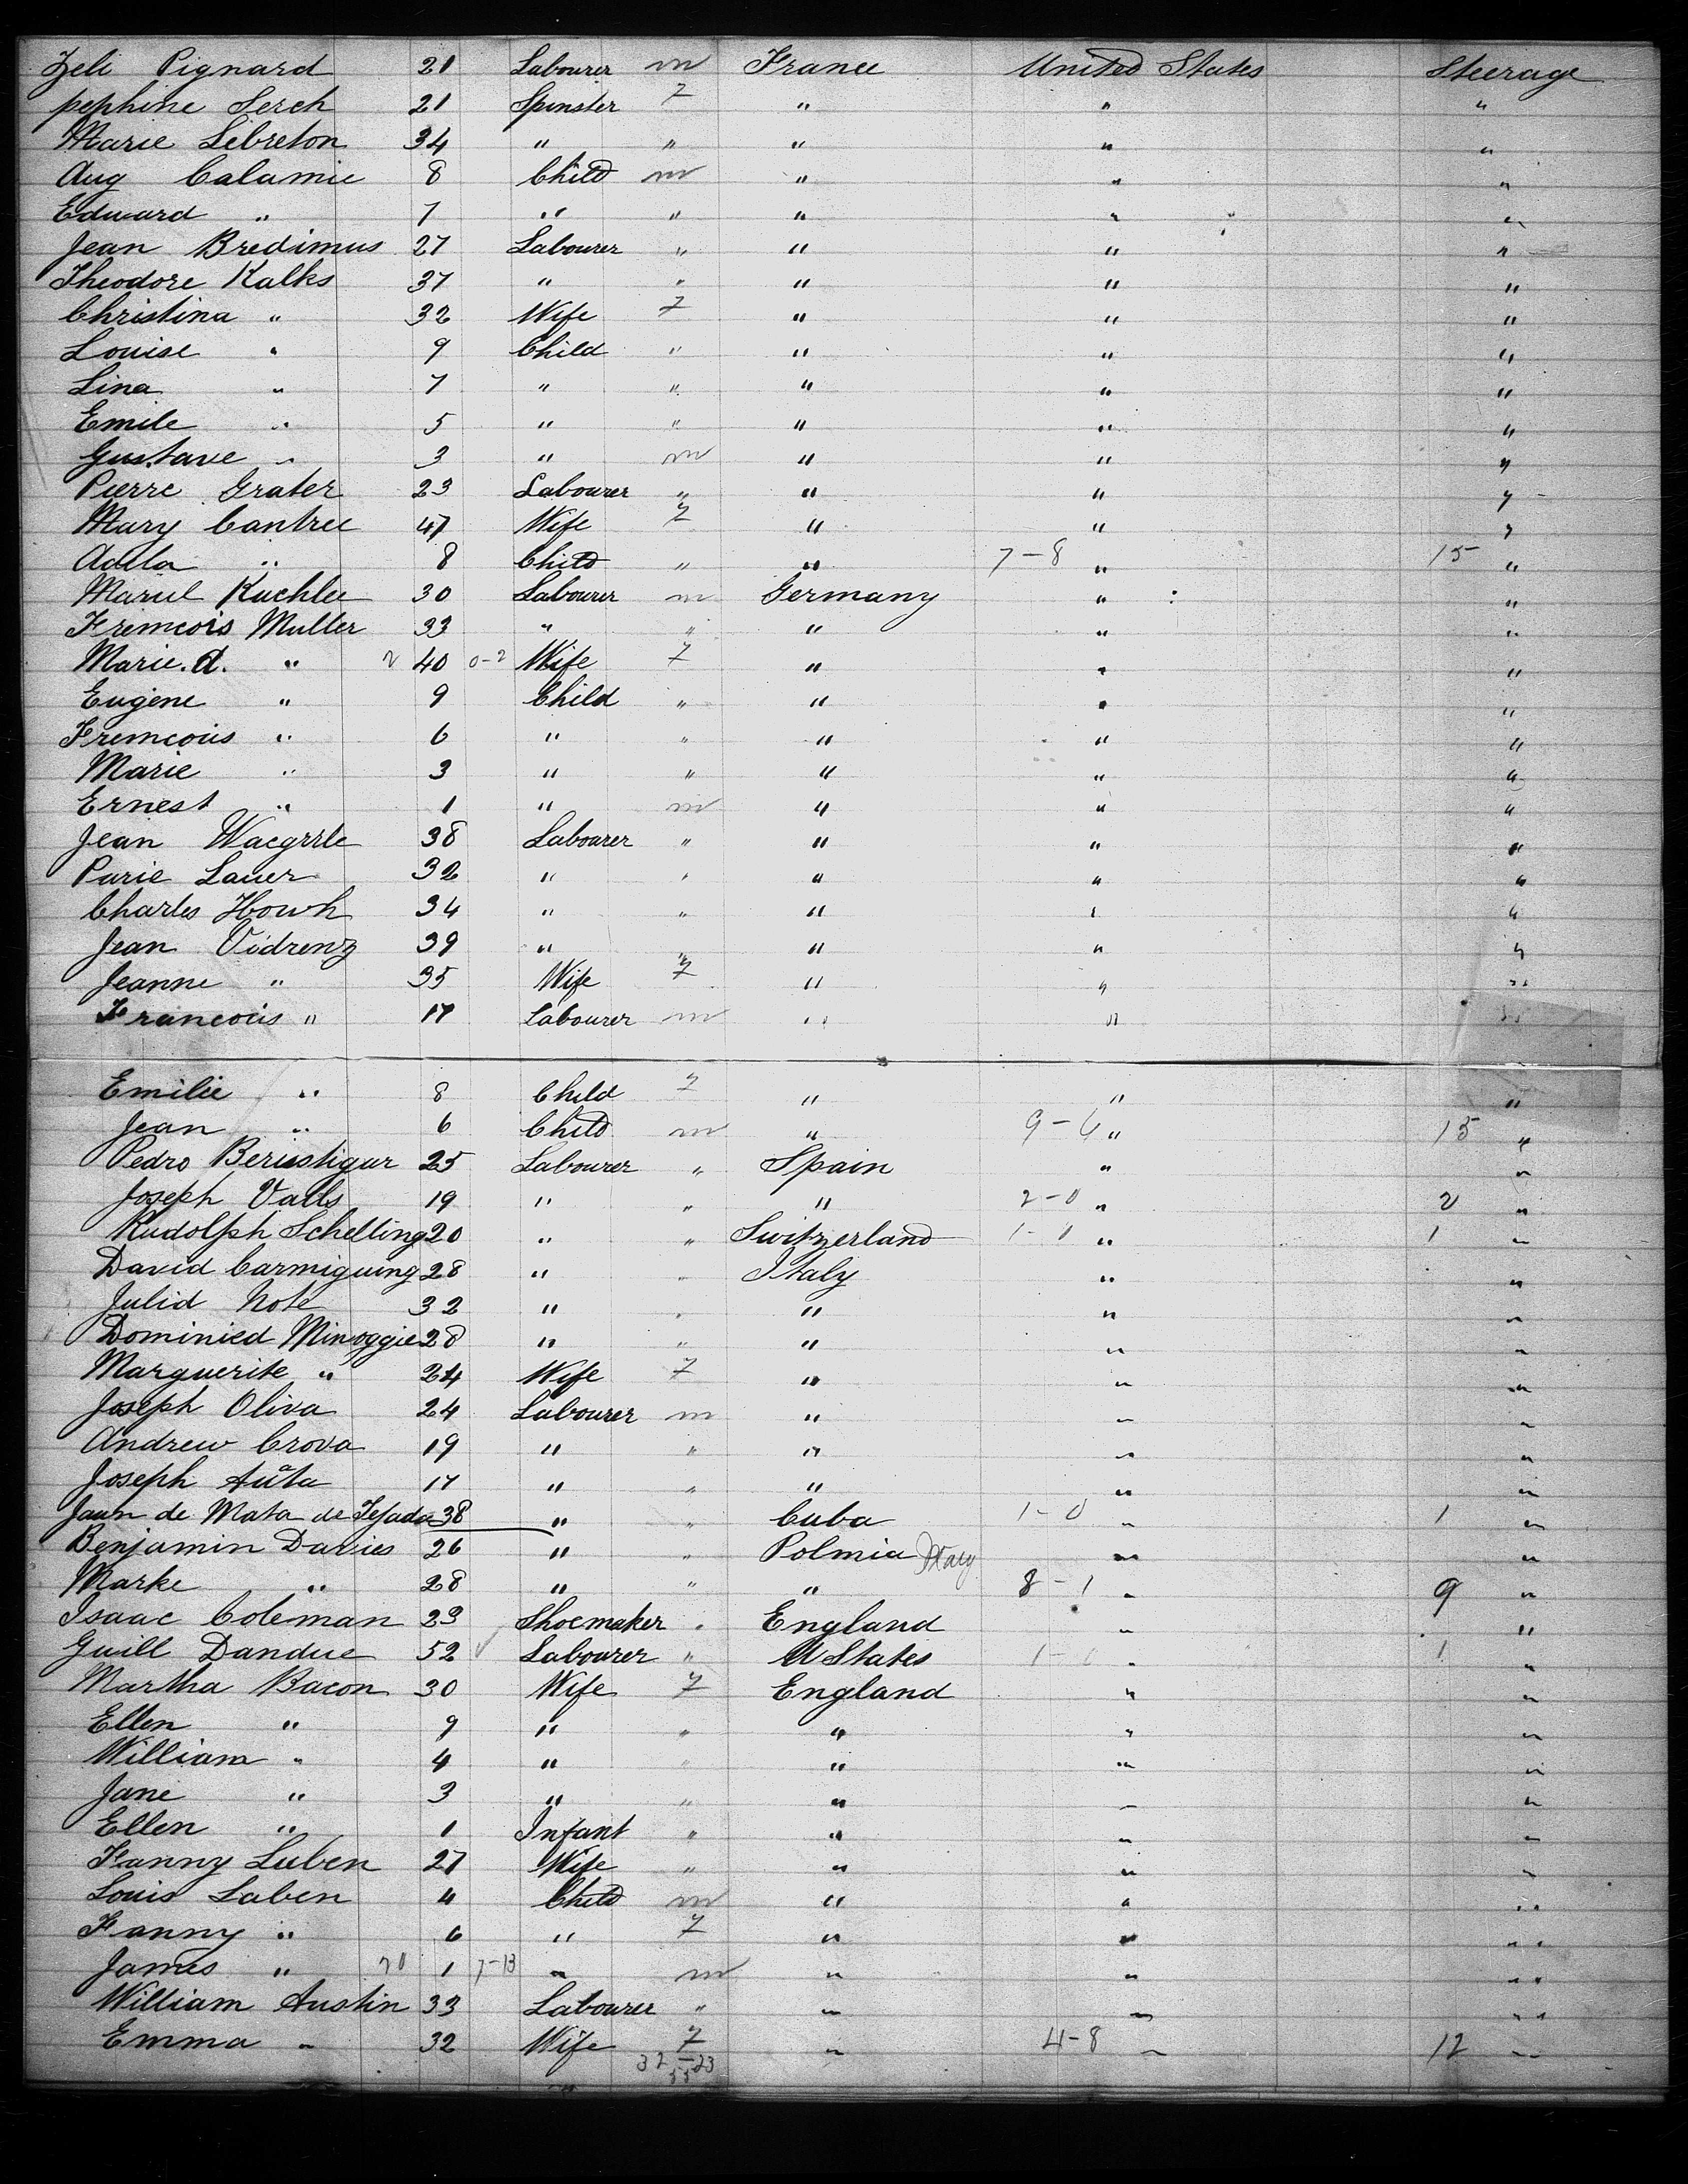 Zeli Pignard 21 Labourer m France United States Steerage
pephine Serch 21 Spinster F " " "
Marie Lebreton 34 " " " " "
Aug Calamie 8 Child m " " "
Edward " 7 " " " " "
Jean Bredimus 27 Labourer " " " "
Theodore Kalks 37 " " " " "
Christina " 32 Wife F " " "
Louise " 9 Child " " " "
Lina " 7 " " " " "
Emile " 5 " " " " "
Gustave " 3 " m " " "
Pierre Grater 23 Labourer " " " "
Mary Cantree 47 Wife F " " "
Adela " 8 Child " " 7-8 " 15 "
Mariel Kuchlee 30 Labourer m Germany " "
Fremcois Muller 33 " " " " "
Marie. d. " 2 40 0-2 Wife F " " "
Eugene " 9 Child " " " "
Fremcois " 6 " " " " "
Marie " 3 " " " " "
Ernest " 1 " m " " "
Jean Wacgrrle 38 Labourer " " " "
Purie Lauer 32 " " " " "
Charles Howh 34 " " " " "
Jean Vidrenz 39 " " " " "
Jeanne " 35 Wife F " " "
Francois " 17 Labourer m " " "
Emilie " 8 Child F " " "
Jean " 6 Child m " 9-6 " 15 "
Pedro Beristigur 25 Labourer " Spain " "
Joseph Valls 19 " " " 2-0 " 2 "
Rudolph Schelling 20 " " Switzerland 1-0 " 1 "
David Carmiguing 28 " " Italy " "
Julid Note 32 " " " " "
Dominied Minoggie 28 " " " " "
Marguerite " 24 Wife F " " "
Joseph Oliva 24 Labourer m " " "
Andrew Crova 19 " " " " "
Joseph Auta 17 " " " " "
Jaun de Mata de Tejada 38 " " Cuba 1-0 " 1 "
Benjamin Davies 26 " " Polmia Italy " "
Marke " 28 " " " 8-1 " 9 "
Isaac Coleman 23 Shoemaker " England " "
Guill Dandue 52 Labourer " U States 1-0 " 1 "
Martha Bacon 30 Wife F England " "
Ellen " 9 " " " " "
William " 4 " " " " "
Jane " 3 " " " " "
Ellen " 1 Infant " " " "
Fanny Luben 27 Wife " " " "
Louis Laben 4 Child m " " "
Fanny " 6 " F " " "
James " 20 1 7-13 " m " " "
William Austin 33 Labourer " " " "
Emma " 32 Wife F " 4-8 " 12 "
32-23
55